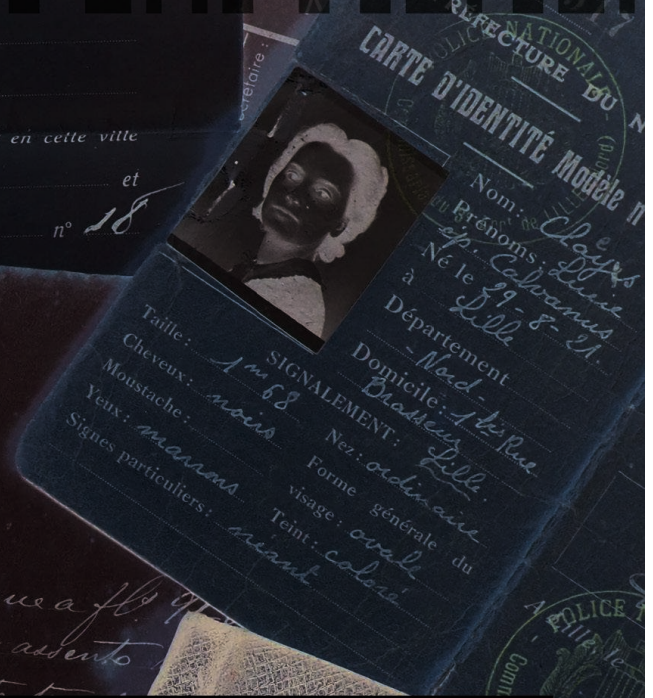 en cette ville
et
n° 18
ecrétaire :
PRÉFECTURE DU N
CARTE D'IDENTITÉ Modèle n
POLICE NATIONALE
Nom: Clayes
Prénoms: Lucie
ép. Calvanus
Né le 29-8-21
à Lille
Département
- Nord -
Domicile: 1 bis Rue
Brasseur
Lille.
SIGNALEMENT:
Taille: 1m68
Cheveux: noirs
Moustache:
Yeux: marrons
Signes particuliers: néant
Nez: ordinaire
Forme générale du
visage: ovale
Teint: coloré
assento
POLICE